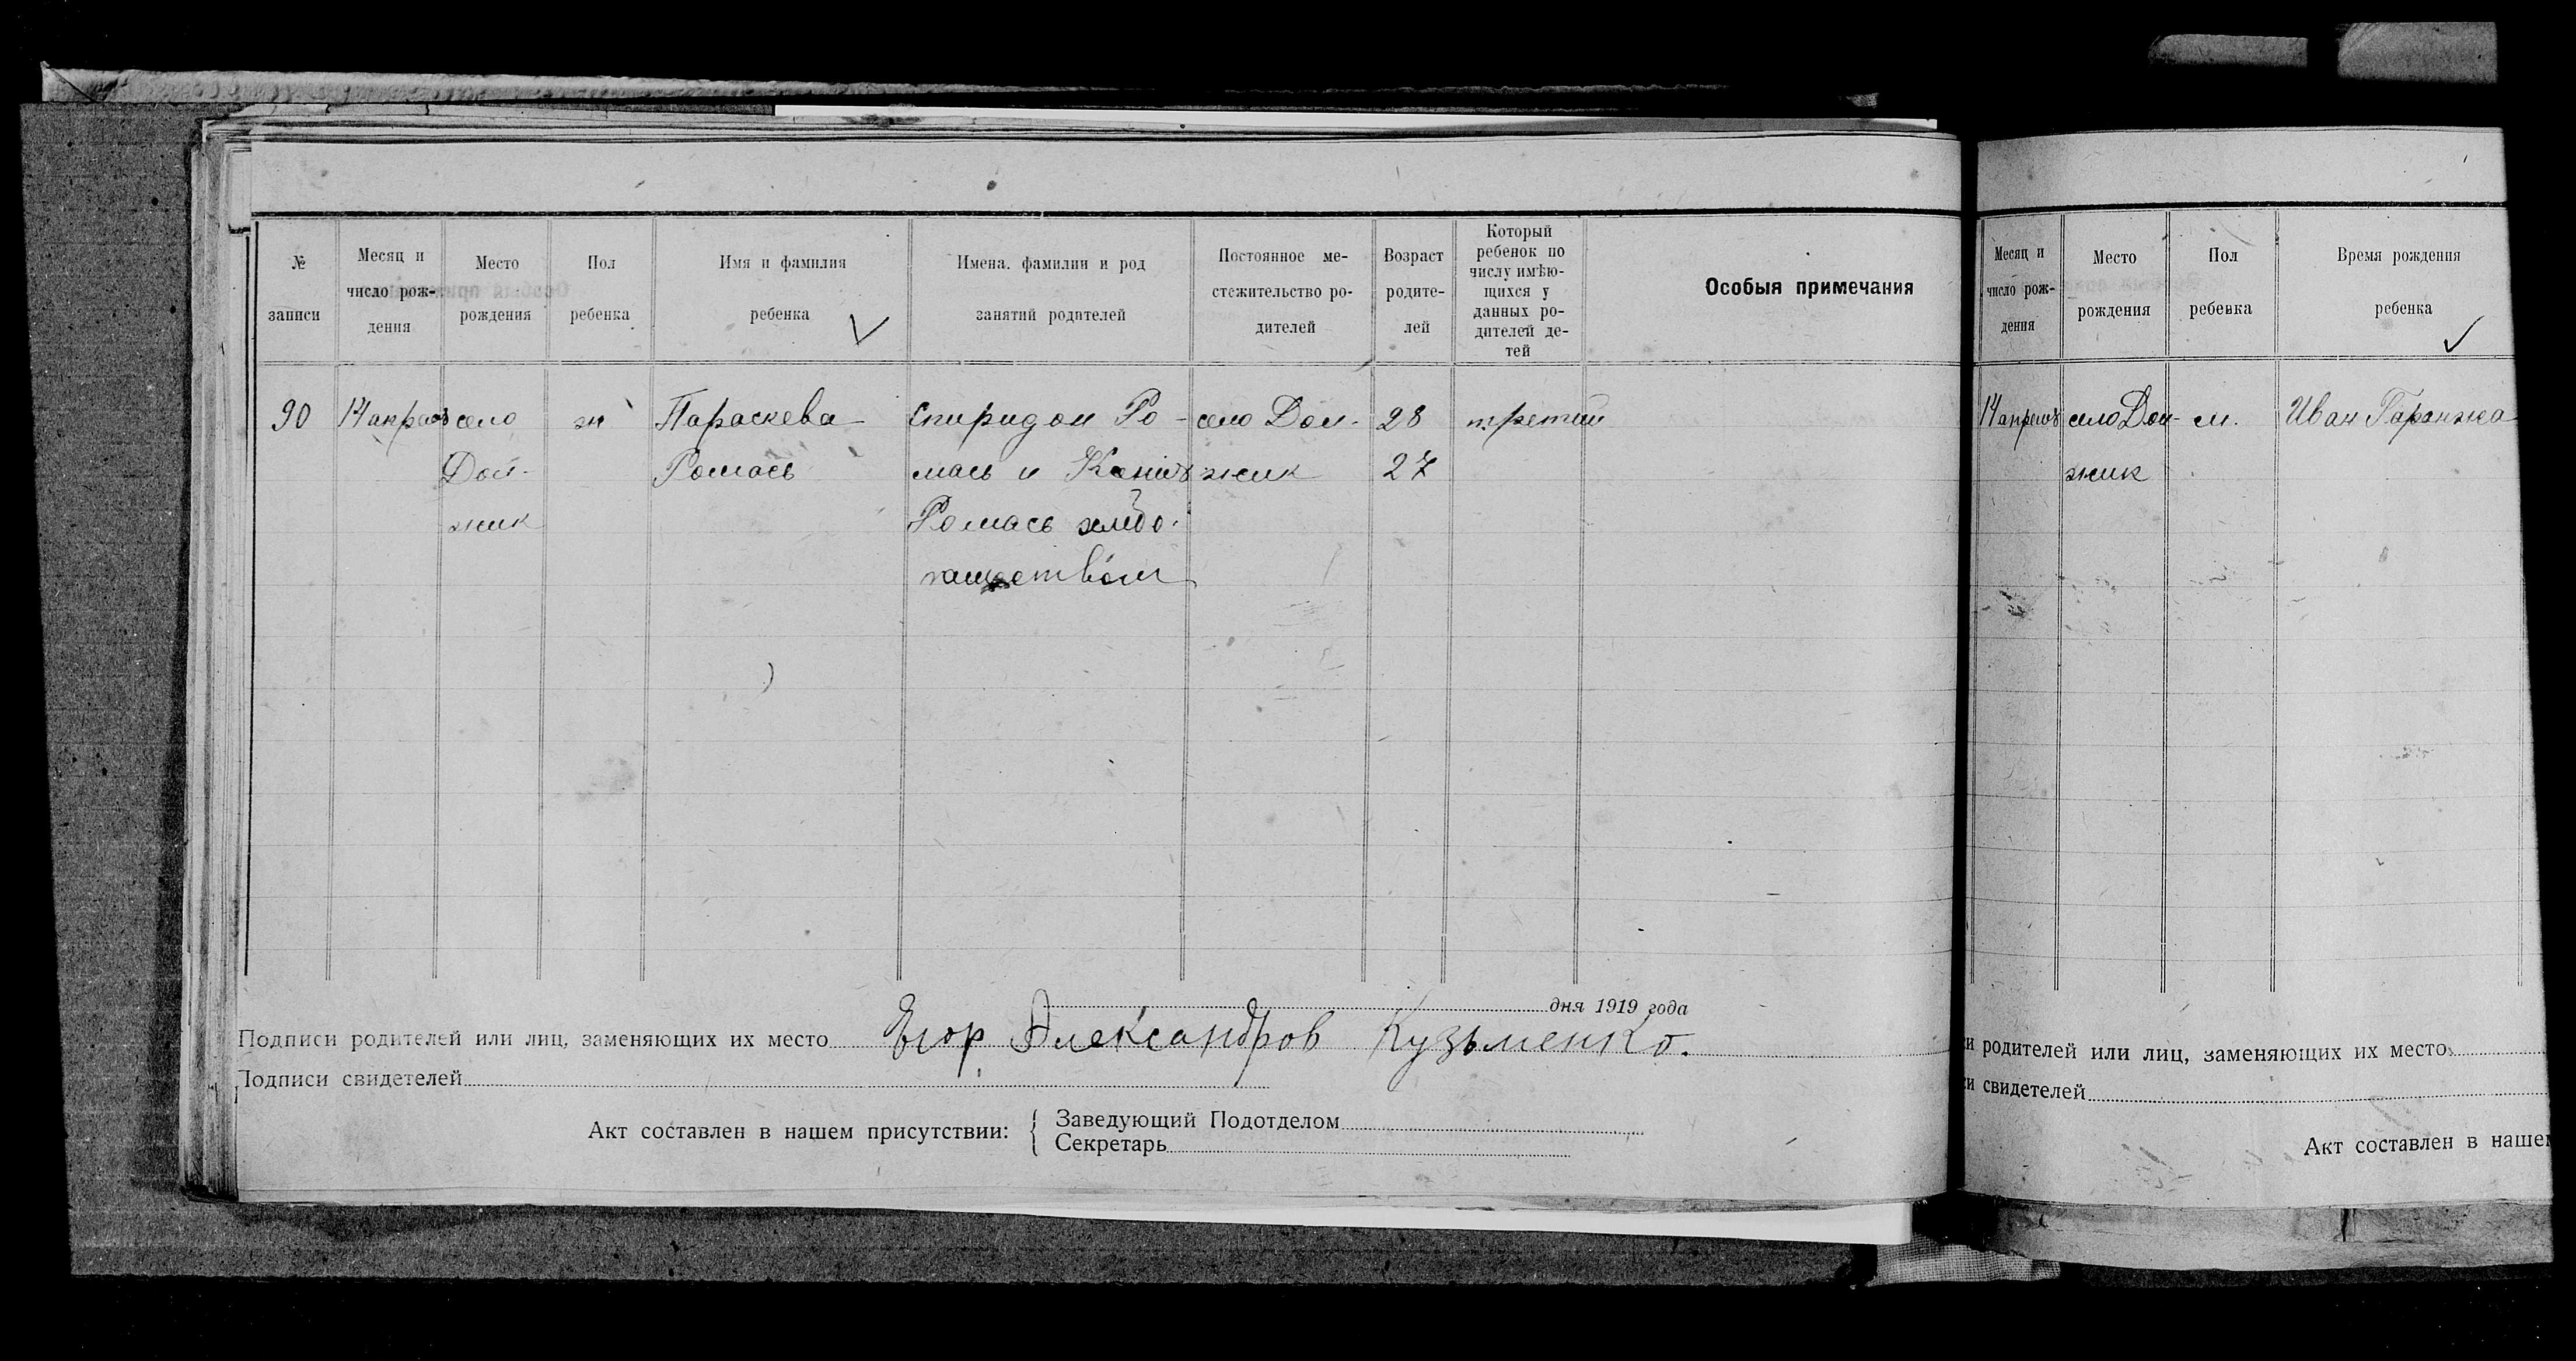 № записи
Месяц и число рождения
Место рождения
Пол ребенка
Имя и фамилия ребенка
Имена. фамилии и род занятий родителей
Постоянное местожительство родителей
Возраст родителей
Который ребенок по числу имѣющихся у данных родителей детей
Особыя примечания
90
село
Дол-
жик
ж
Параскева
Ромась
Спиридон Ро-
мась и
Ромась хлебо-
пашеством
село Дол-
жик
28
27
третий
дня 1919 года
Подписи родителей или лиц, заменяющих их место Егор Александров Кузьменко.
Подписи свидетелей
Акт составлен в нашем присутствии:
Заведующий Подотделом
Секретарь
Месяц и число рождения
Место рождения
Пол ребенка
Время рождения ребенка
село Дол-
жик
м.
Иван Гаранжа
и родителей или лиц, заменяющих их место
и свидетелей
Акт составлен в наше